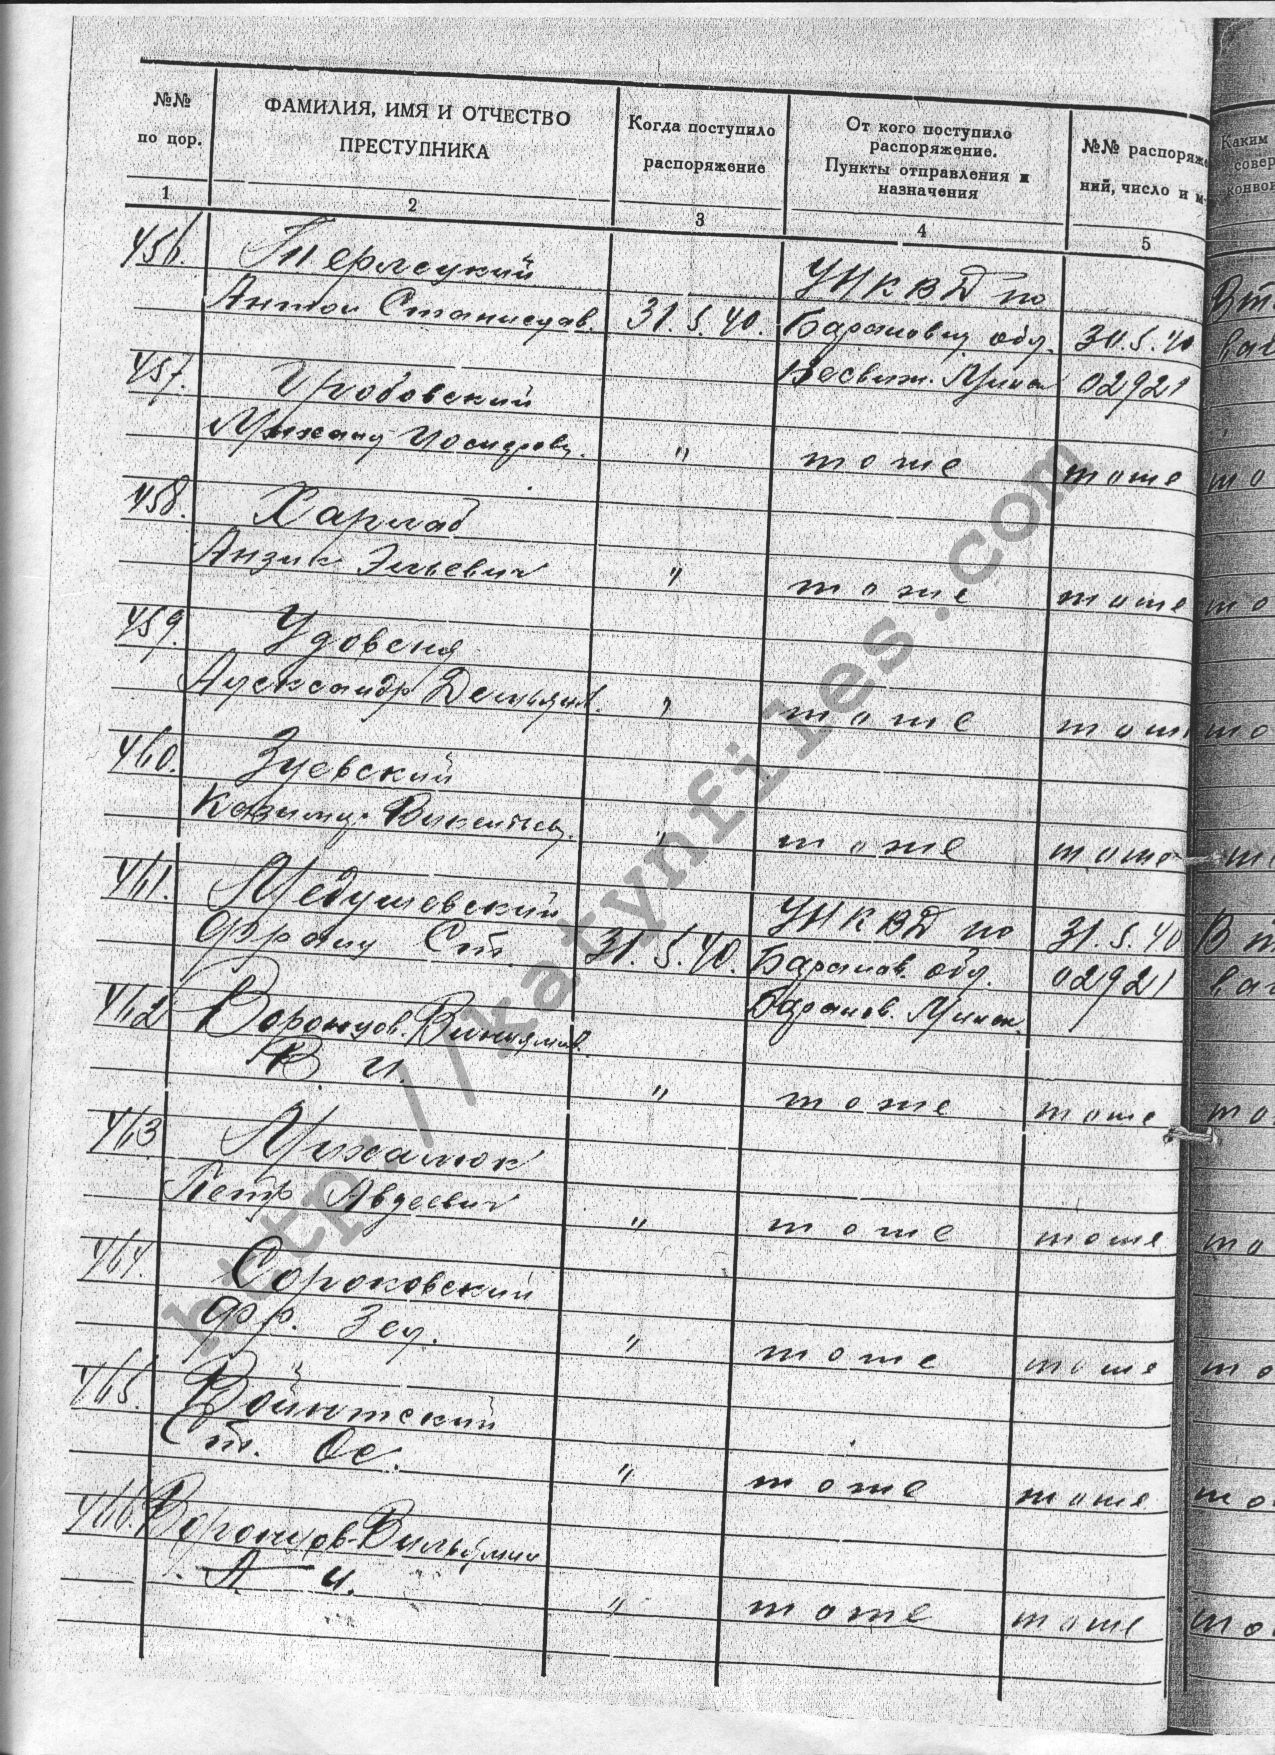 №№ по пор.
ФАМИЛИЯ, ИМЯ И ОТЧЕСТВО ПРЕСТУПНИКА
Когда поступило распоряжение
От кого поступило распоряжение. Пункты отправления и назначения
№№ распоряже
ний, число и м
Каким
совер
конвои
1 2 3 4 5
456. Терлецкий УНКВД по
Антон Станислав. 31.5.40. Баранович обл. 30.5.40
Несвиж. Минск 02921
457. Гробовский
" тоже тоже то
458. Харлаб
Анзик Эльевич " тоже тоже то
459. Удовеня
Александр Демьянов. " тоже тоже то
460. Зуевский
Казимир Викентьев. " тоже тоже
461. Медушевский УНКВД по 31.5.40
Франц Ст. 31.5.40. Баранов. обл. 02921
Баранов. Минск.
462 Воронцов.
В. И. " тоже тоже то
463 Михалюк
Петр Авдеевич " тоже тоже то
464. Сороковский
Фр. " тоже тоже то
465. Войютский
Ст. Ос. " тоже тоже то
466. Воронцов-Вильямин
А И. " тоже тоже то
http://katynfiles.com